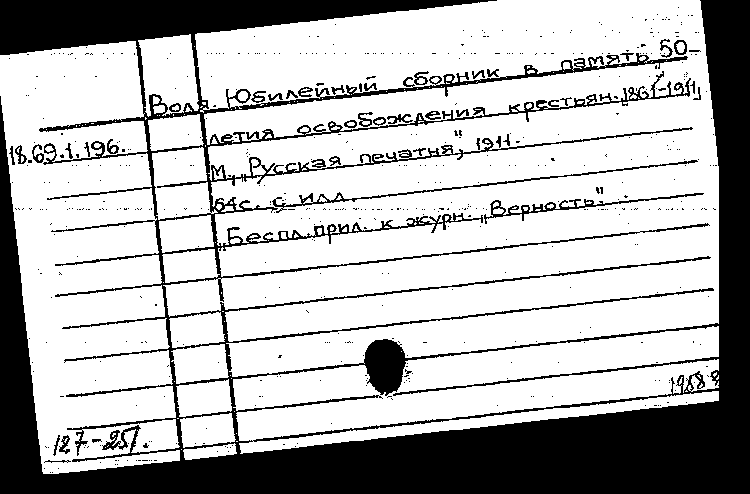 Воля. Юбилейный сборник в память 50-
18.69.1.196.
летия освобождения крестьян. „1861-1911„
М., „Русская печатня", 1911.
64с. с илл.
„Беспл. прил. к журн. „Верность".
127-251.